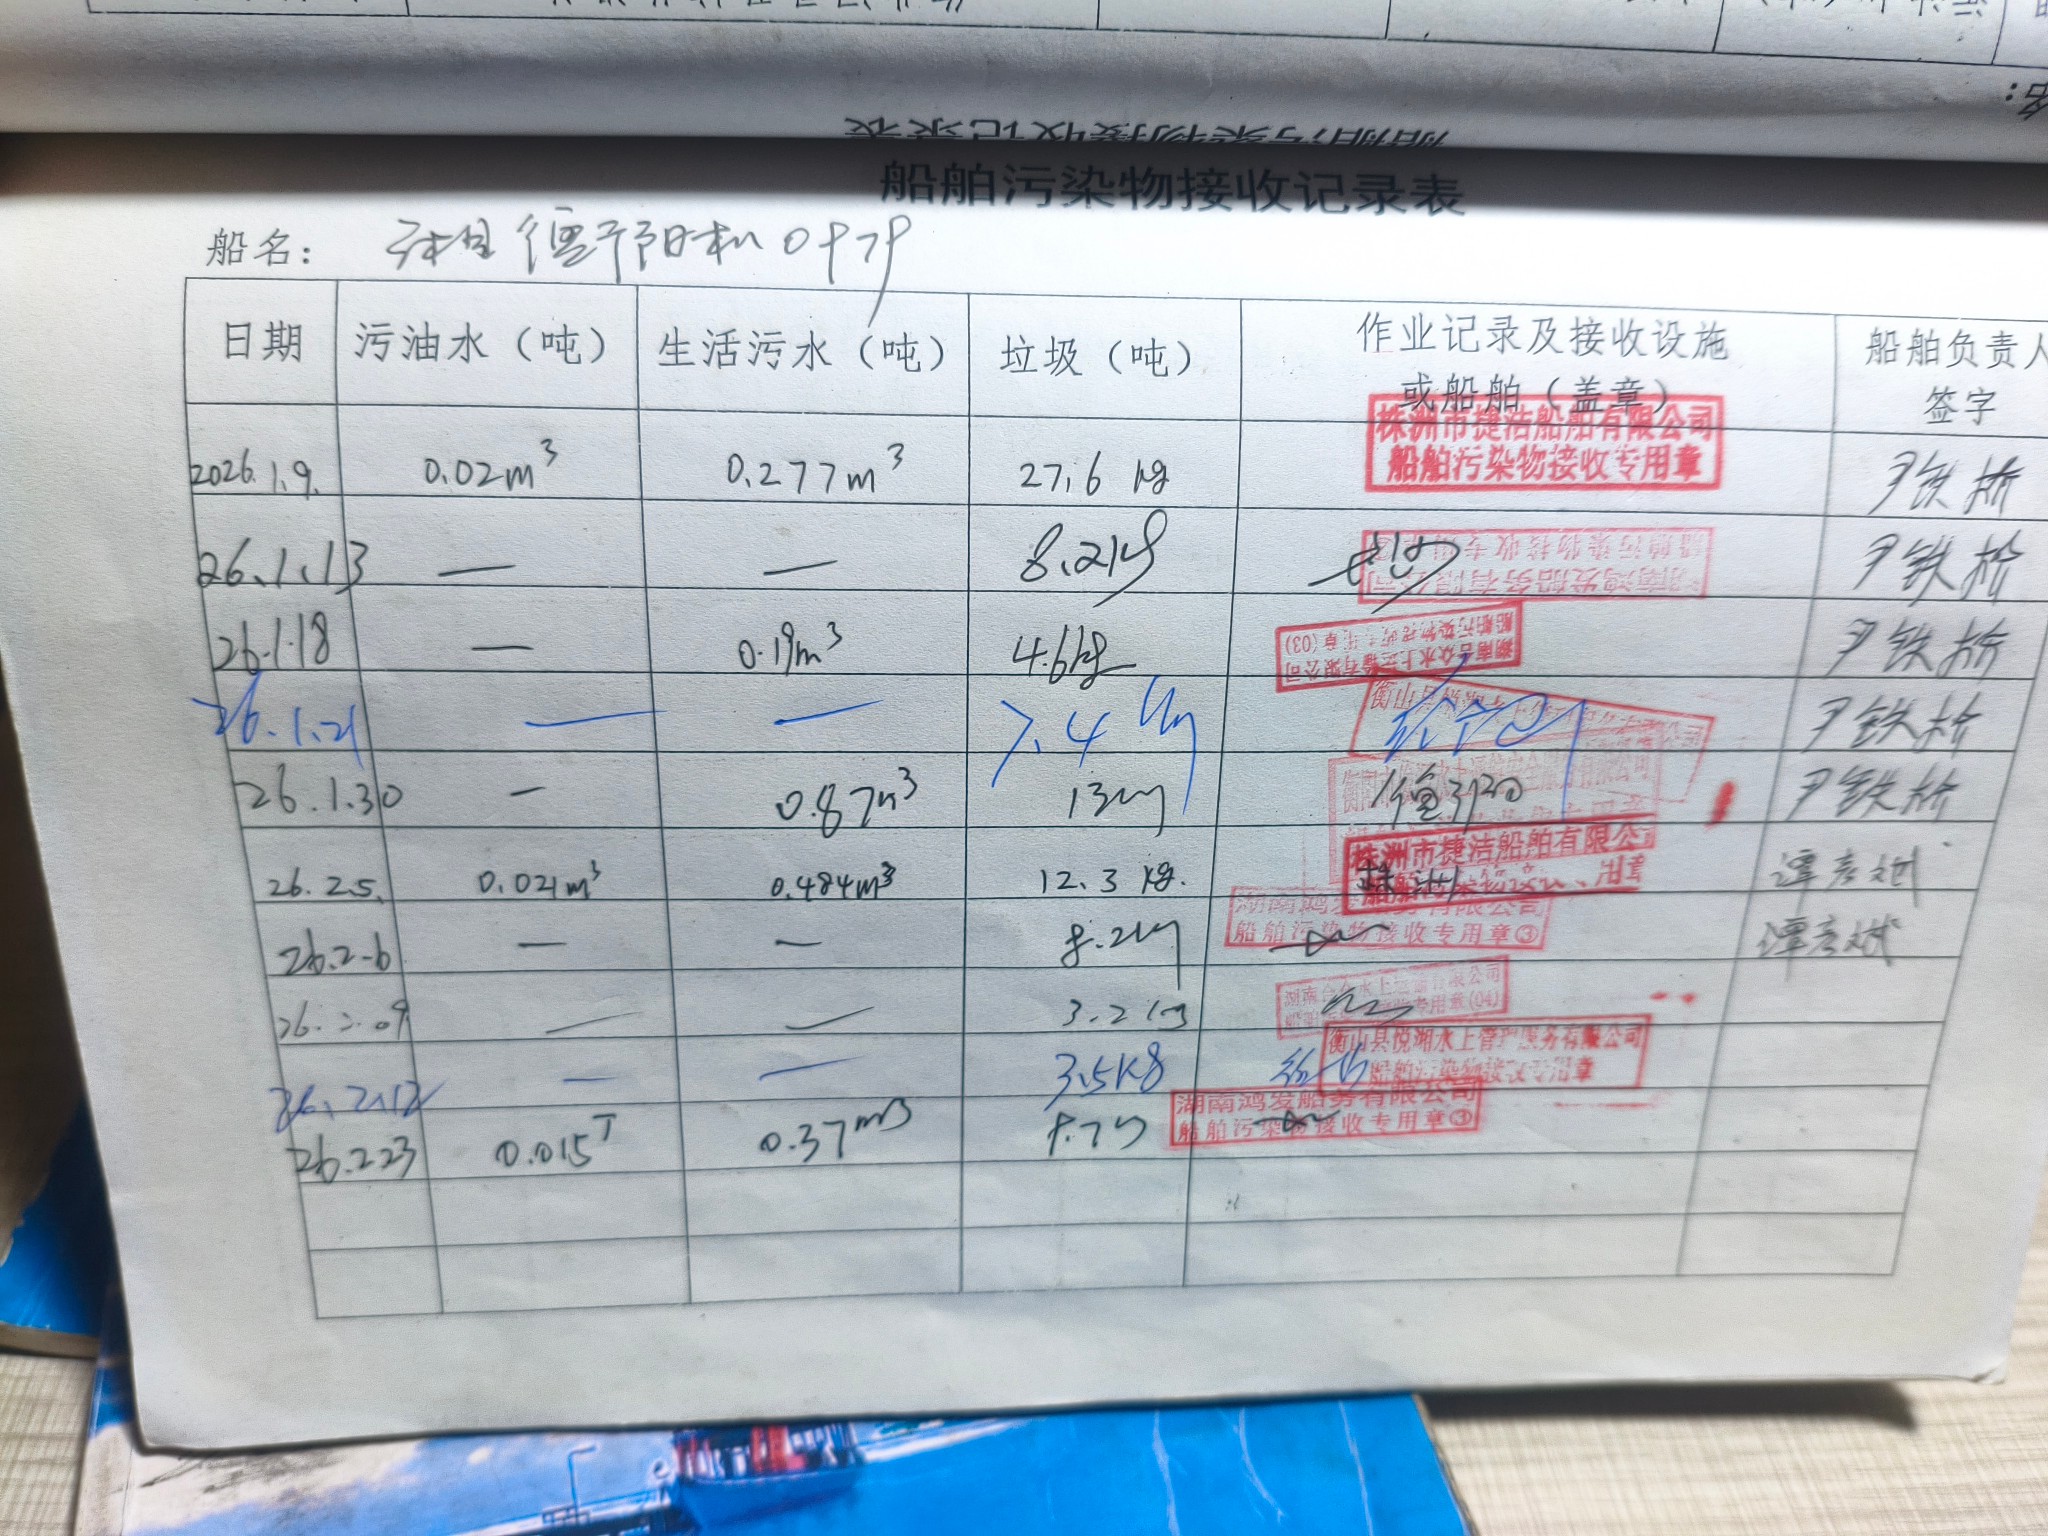 船舶污染物接收记录表
船名：
日期 污油水（吨） 生活污水（吨） 垃圾（吨） 作业记录及接收设施或船舶（盖章） 船舶负责人签字
株洲市捷洁船舶有限公司
船舶污染物接收专用章
2026.1.9. 0.02m³ 0.277m³ 27.6 kg 尹铁桥
26.1.13 — — 8.2kg 尹铁桥
湖南鸿发船务有限公司
船舶污染物接收专用章
26.1.18 — 0.19m³ 4.6kg 尹铁桥
湖南合众水上运输有限公司
船舶污染物接收专用章(03)
26.1.21 — — 7.4 kg 尹铁桥
26.1.30 — 0.87m³ 13kg 尹铁桥
株洲市捷洁船舶有限公
26.2.5. 0.021m³ 0.484m³ 12.3 kg. 株洲
湖南鸿发船务有限公司
船舶污染物接收专用章③
26.2-6 — — 8.2kg
湖南合众水上运输有限公司
26.2.09 — — 3.2kg
衡山县悦湘水上管理服务有限公司
船舶污染物接收专用章
26.2.12 — — 3.5kg
湖南鸿发船务有限公司
船舶污染物接收专用章③
26.2.23 0.015T 0.37m³